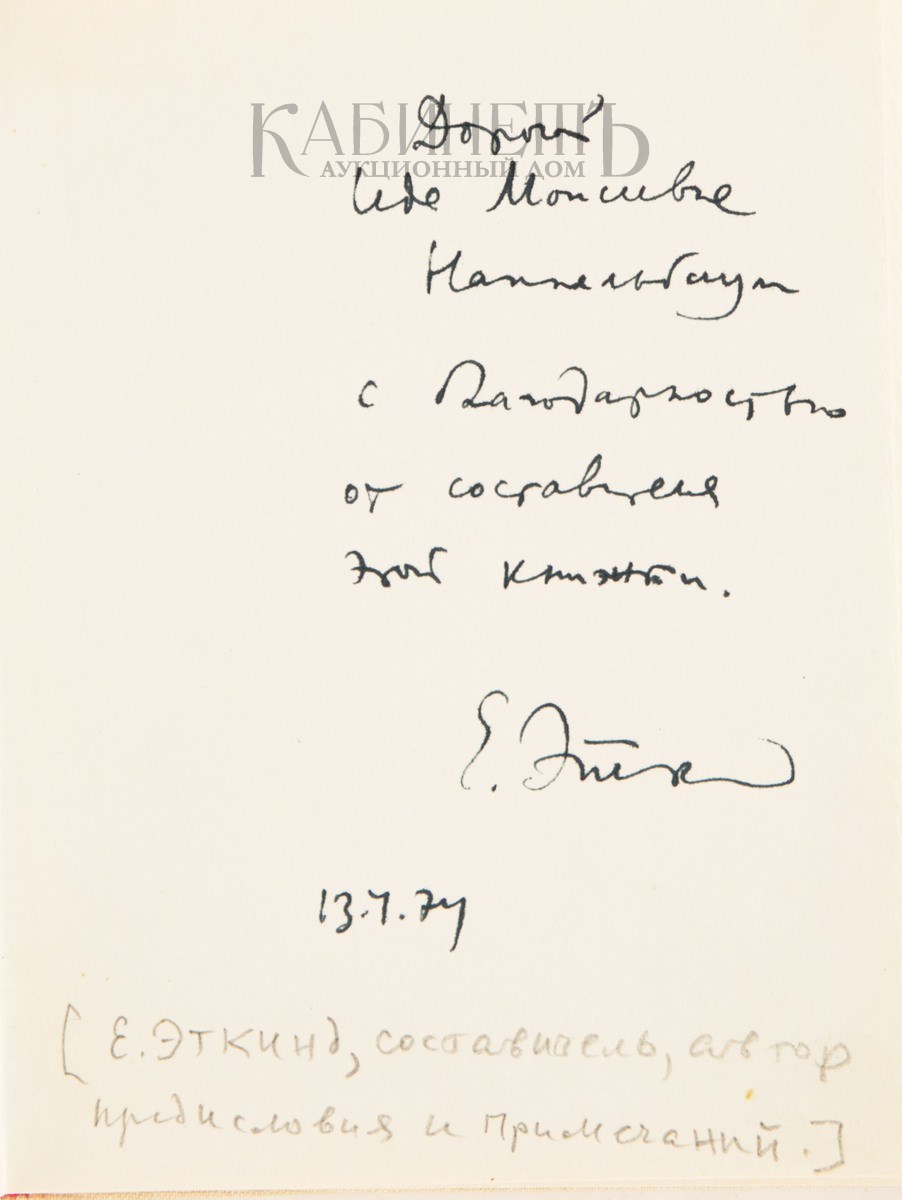 КАБИНЕТЪ
АУКЦИОННЫЙ ДОМ
Дорогой
Иде Моисеевне
Наппельбаум
с благодарностью
от составителя
этой книжки.
Е. Эткинд
13.I.74
[Е. Эткинд, составитель, автор
предисловия и примечаний.]